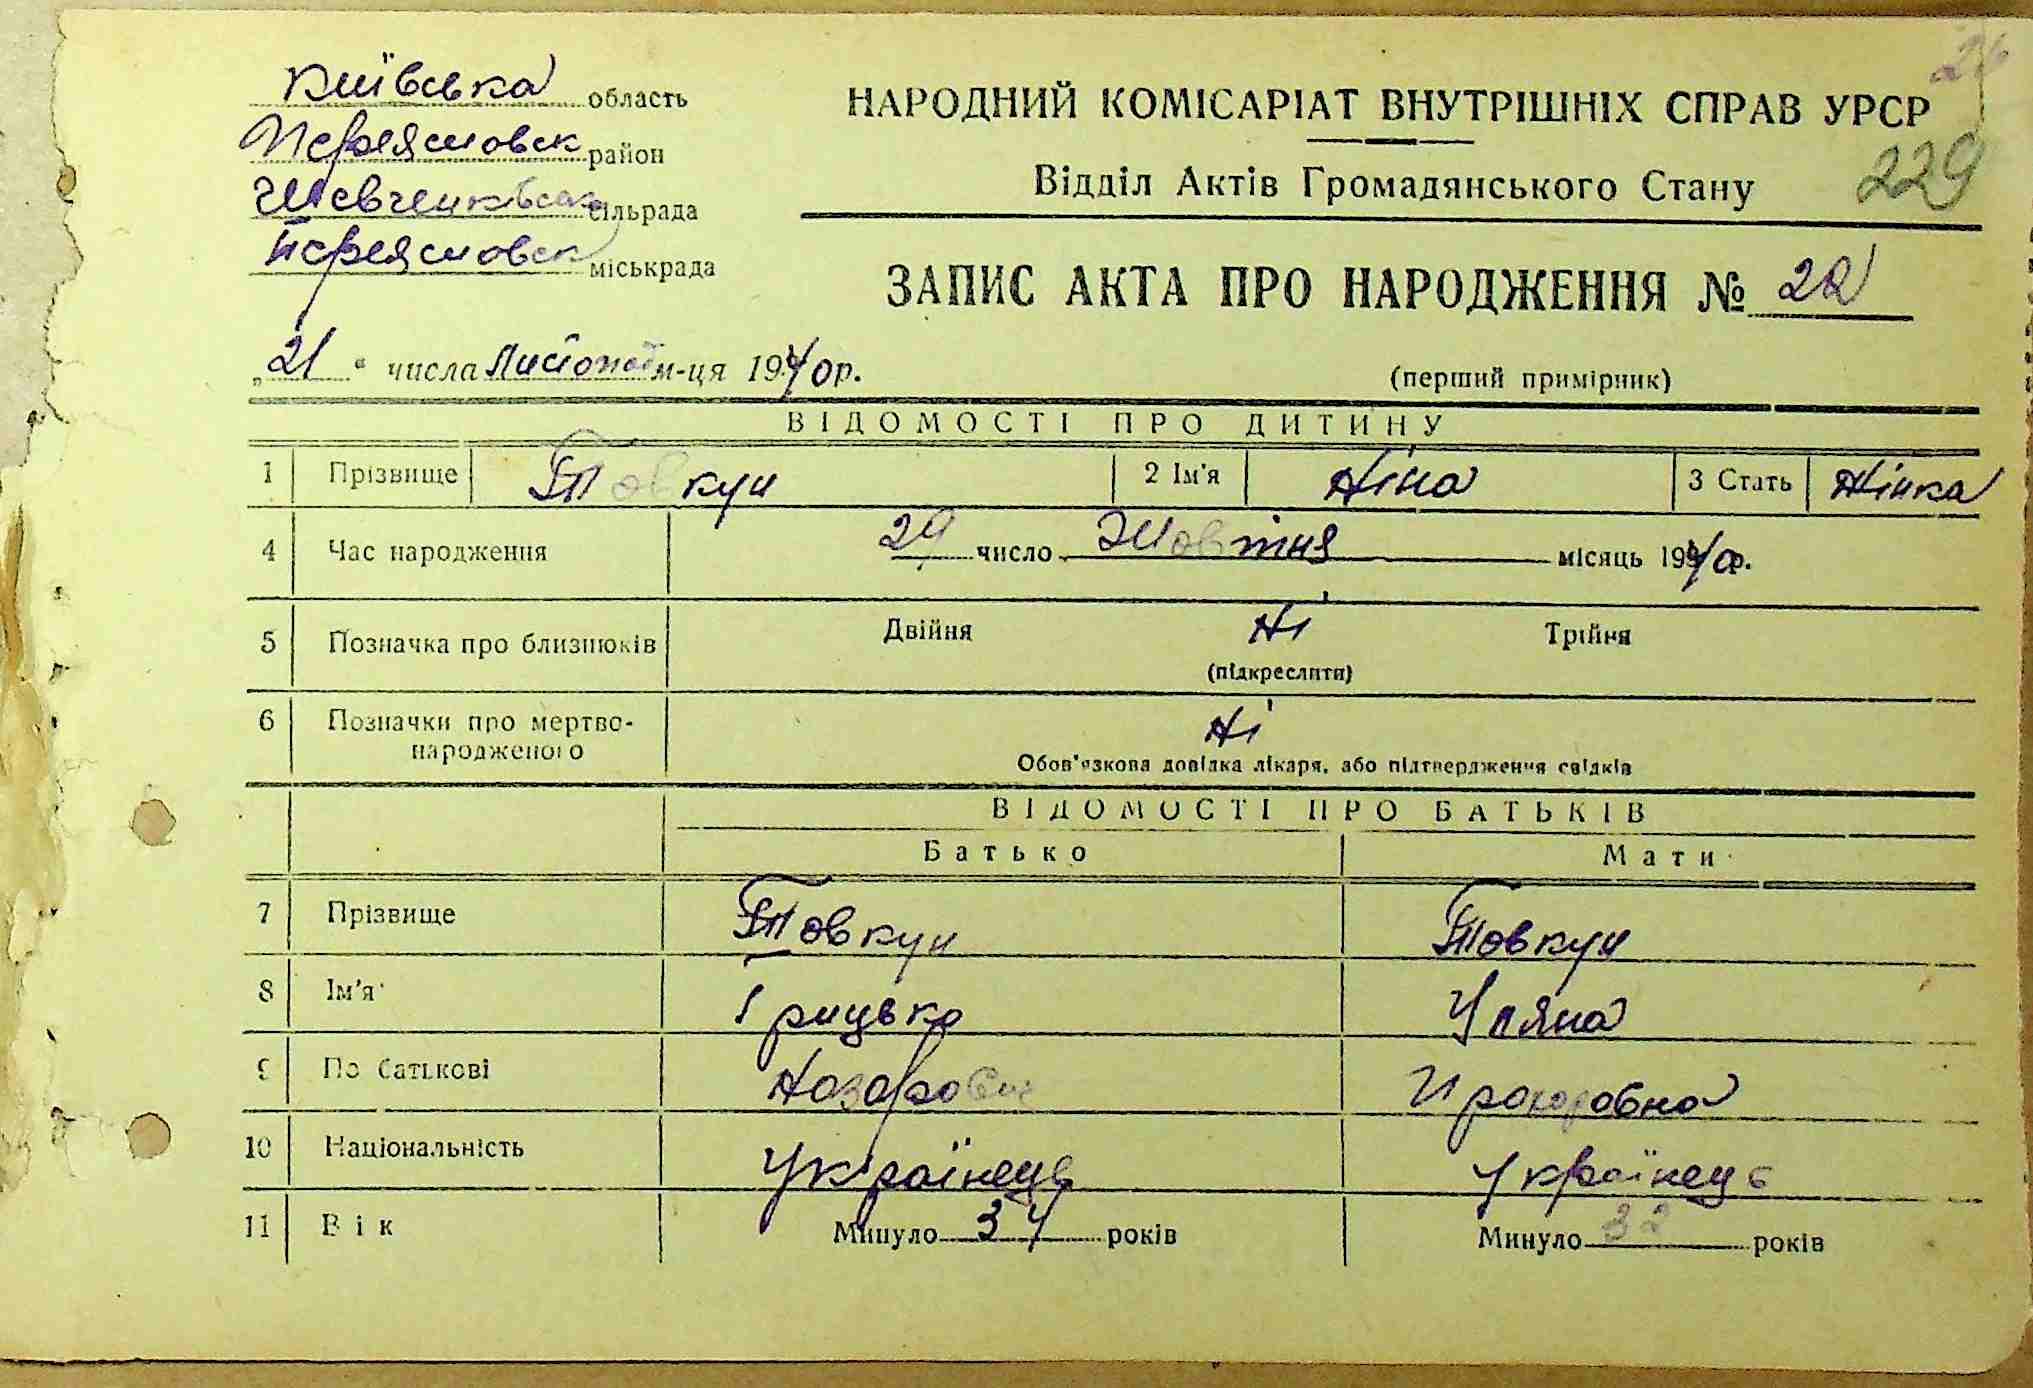 26
Київська область
НАРОДНИЙ КОМІСАРІАТ ВНУТРІШНІХ СПРАВ УРСР
Переясловськ район
229
Відділ Актів Громадянського Стану
Шевченківськ сільрада
Переясловськ міськрада
ЗАПИС АКТА ПРО НАРОДЖЕННЯ № 22
„21“ числа Листопад м-ця 1940р.
(перший примірник)
ВІДОМОСТІ ПРО ДИТИНУ
1 Прізвище Товкун 2 Ім'я Ніна 3 Стать Жінка
4 Час народження 29 число Жовтня місяць 1940р.
5 Позначка про близнюків Двійня Ні Трійня
(підкреслити)
6 Позначки про мертво-
народженого Ні
Обов'язкова довідка лікаря, або підтвердження свідків
ВІДОМОСТІ ПРО БАТЬКІВ
Батько Мати
7 Прізвище Товкун Товкун
8 Ім'я Грицько Уляна
9 По батькові Назарович Прохоровна
10 Національність Українець Українець
11 Вік Минуло 34 років Минуло 32 років